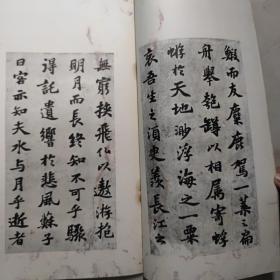 鰕而友麋鹿駕一葉之扁
舟舉匏罇以相属寄蜉
蝣於天地渺浮海之一粟
哀吾生之須臾羨長江之
無窮挾飛仙以遨游抱
明月而長終知不可乎驟
得託遺響於悲風蘇子
曰客亦知夫水与月乎逝者